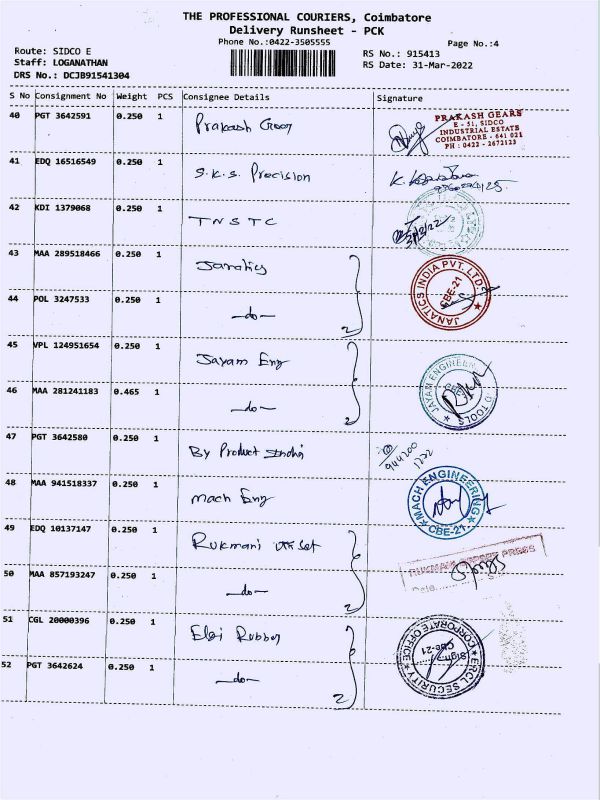 THE PROFESSIONAL COURIERS, Coimbatore
Delivery Runsheet - PCK
Phone No.:0422-3505555
Page No.:4
Route: SIDCO E
Staff: LOGANATHAN
DRS No.: DCJB91541304
RS No.: 915413
RS Date: 31-Mar-2022
S No Consignment No Weight PCS Consignee Details Signature
40 PGT 3642591 0.250 1 Prakash Gear
PRAKASH GEARS
E - 51, SIDCO
INDUSTRIAL ESTATE
COIMBATORE - 641 021
PH : 0422 - 2672123
41 EDQ 16516549 0.250 1 S.K.S. Precision
42 KDI 1379068 0.250 1 TNSTC
43 MAA 289518466 0.250 1 Janatics
JANATICS INDIA PVT. LTD.
CBE-21
44 POL 3247533 0.250 1 -do- 2
45 VPL 124951654 0.250 1 Jayam Eng
46 MAA 281241183 0.465 1 -do- 2
JAYAM ENGINEERING TOOLS
47 PGT 3642580 0.250 1 By Product India
944200
1722
48 MAA 941518337 0.250 1 Mach Eng
MACH ENGINEERING
CBE-21
49 EDQ 10137147 0.250 1 Rukmani
50 MAA 857193247 0.250 1 -do- 2
PRESS
Date
51 CGL 20000396 0.250 1 Elgi Rubber
ERCL SECURITY
CORPORATE OFFICE
Sign
Cbe-21
52 PGT 3642624 0.250 1 -do- 2